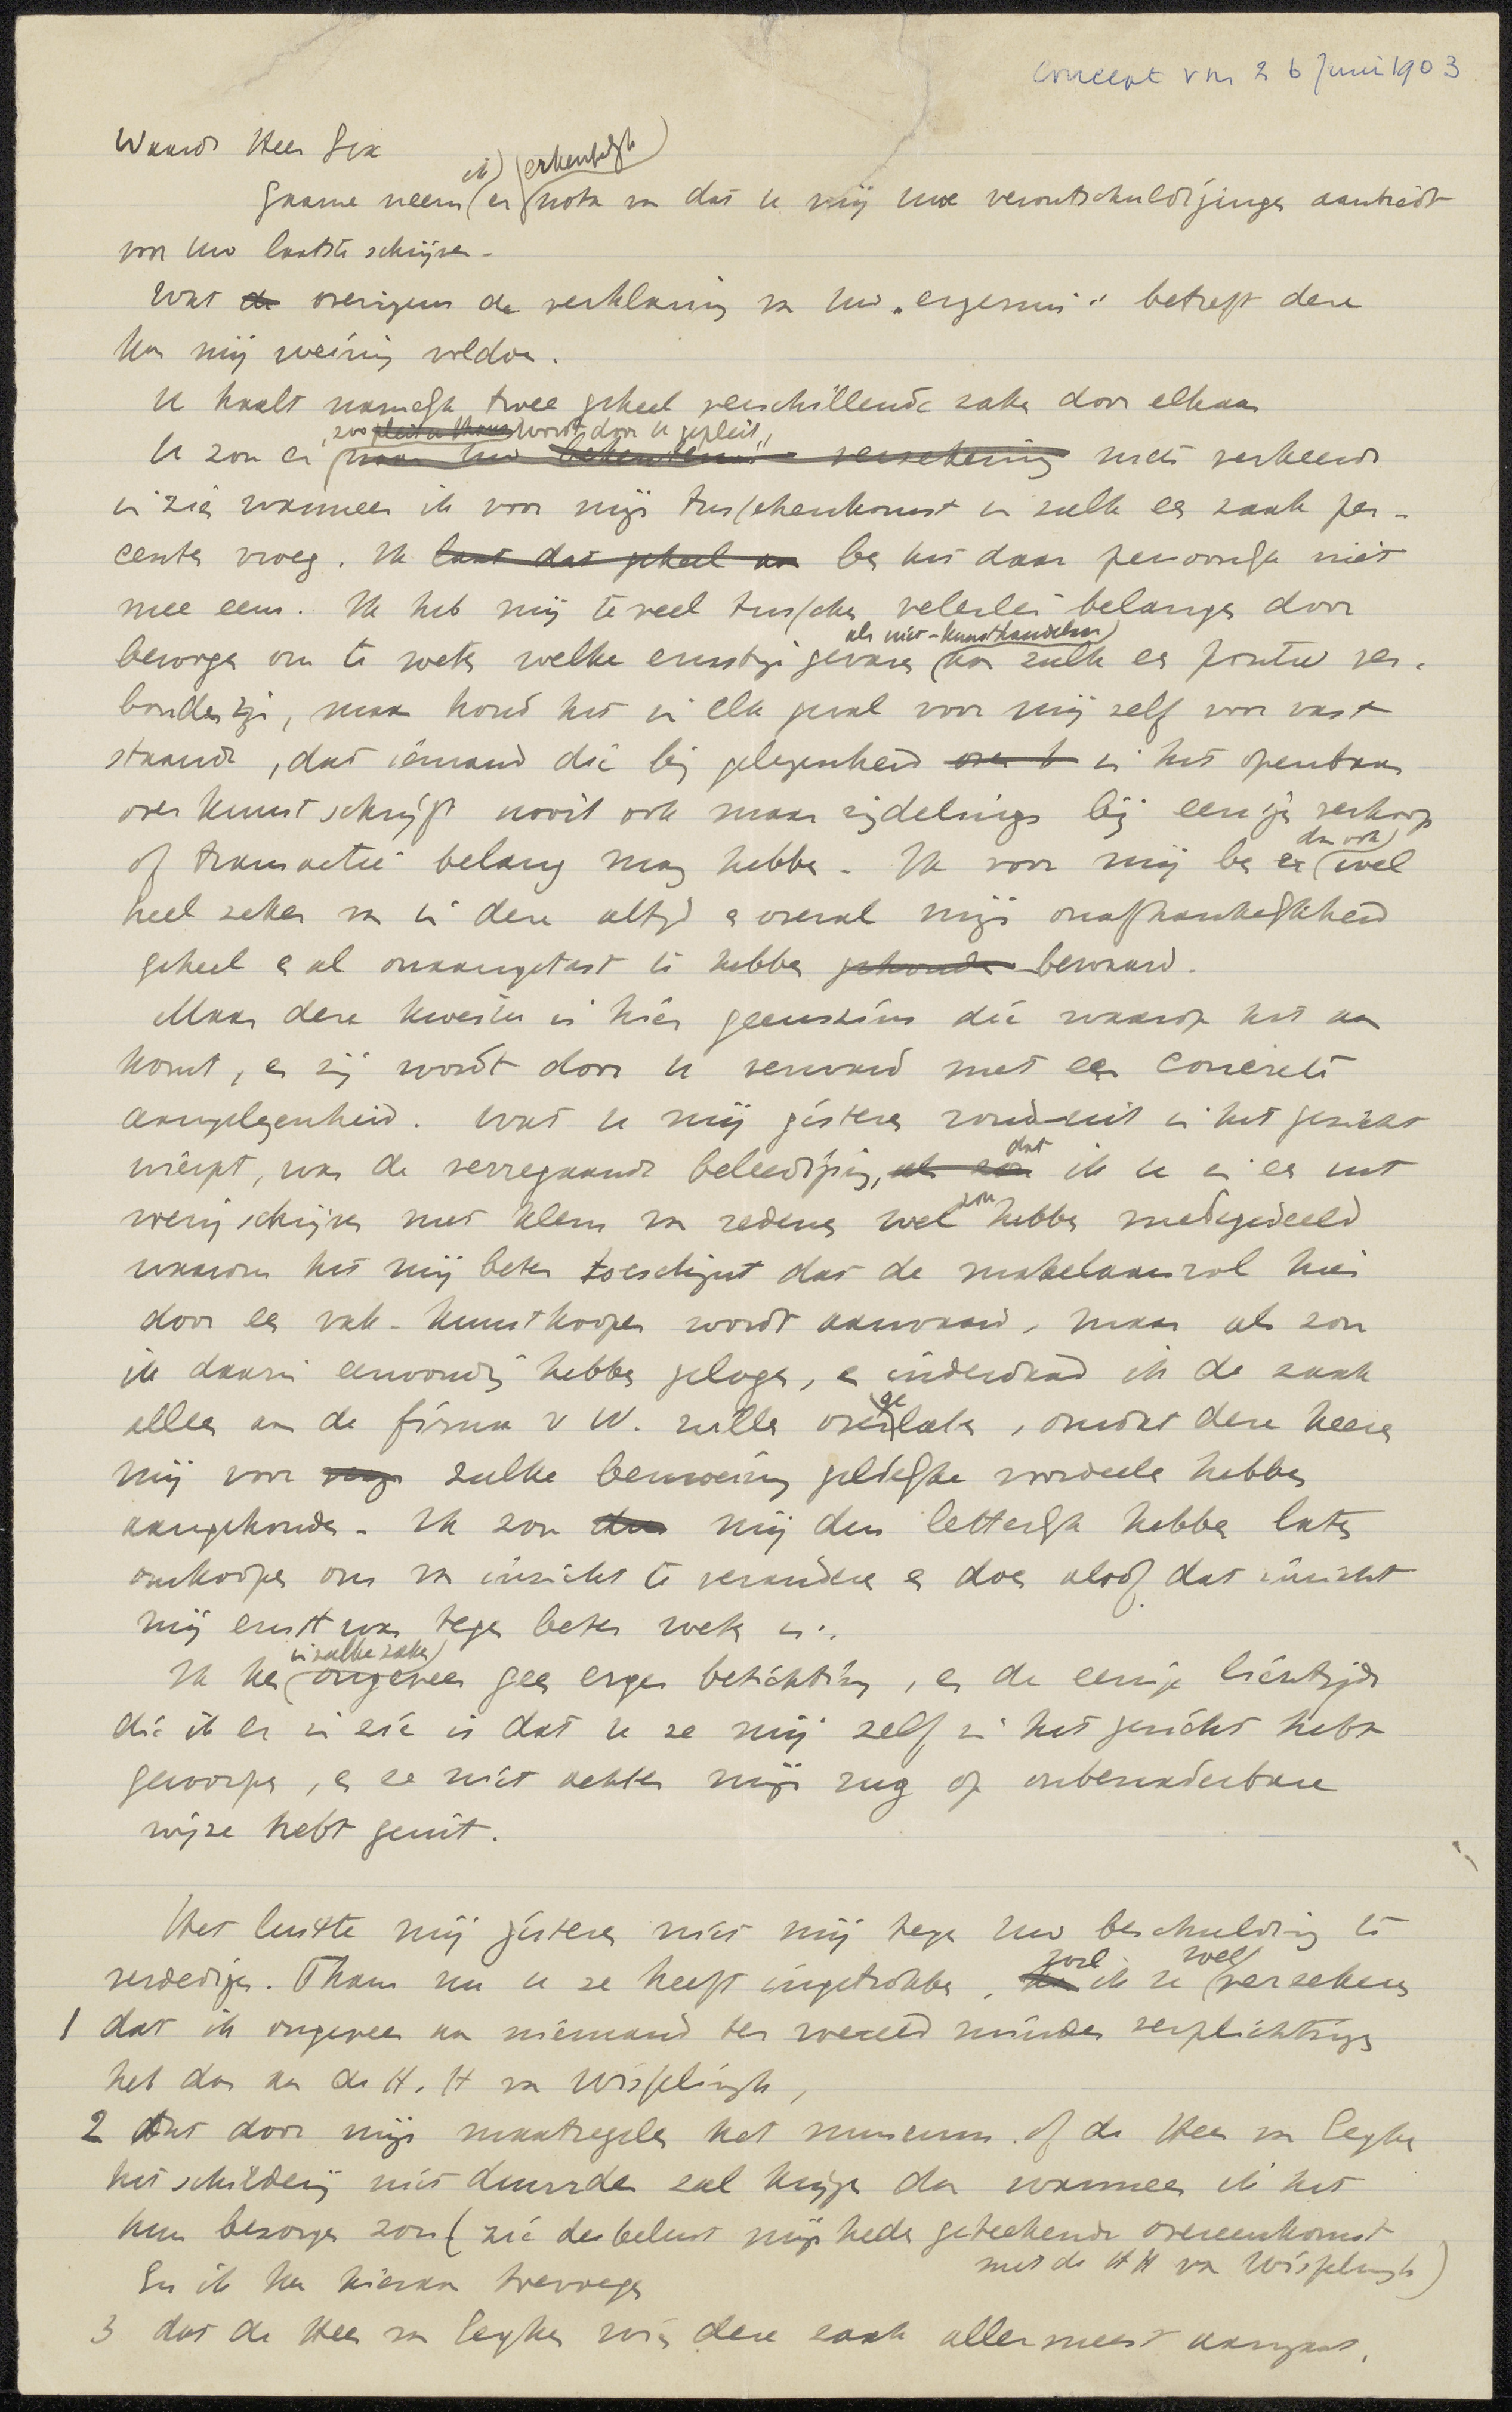 concept van 26 Juni 1903
Waarde Heer Six
Gaarne neem (ik) er (erkentelijk) nota van dat u mij uwe verontschuldigingen aanbiedt
voor uw laatste schrijven.
Wat de overigens de verklaring van uw „ergernis" betreft deze
kan mij weinig voldoen.
U haalt namelijk twee geheel verschillende zaken door elkaar
U zou er, zoo pleit u thans wordt door u gepleit, naar uw verzekering niets verkeerds
in zien wanneer ik voor mijn tusschenkomst in zulk een zaak per-
centen vroeg. Ik laat dat geheel aan ben het daar persoonlijk niet
mee eens. Ik heb mij te veel tusschen velerlei belangen door
bewogen om te weten welke ernstige gevaren (als niet-kunsthandelaar) aan zulk een positie ver-
bonden zijn, maar houd het in elk geval voor mij zelf voor vast
staande, dat iemand die bij gelegenheid over k in het openbaar
over kunst schrijft nooit ook maar zijdelings bij eenige verkoop
of transactie belang mag hebben. Ik voor mij ben er (dan ook) wel
heel zeker van in deze altijd en overal mijn onafhankelijkheid
geheel en al onaangetast te hebben gehouden bewaard.
Maar deze kwestie is hier geenszins die waarop het aan
komt, en zij wordt door u verward met een concrete
aangelegenheid. Wat u mij gisteren ronduit in het gezicht
wierpt, was de verregaande beleediging, als zou dat ik u in een uit
weinig schrijven met klem van redenen wel zou hebben medegedeeld
waarom het mij beter toeschijnt dat de makelaarsrol hier
door een vak-kunstkooper wordt aanvaard, maar als zou
ik daarin eenvoudig hebben gelogen, en inderdaad ik de zaak
alleen aan de firma v W. zulle overgelaten, omdat deze heeren
mij voor mijn zulke bemoeiing geldelijke voordeelen hebben
aangehouden. Ik zou dus mij dus letterlijk hebben laten
omkoopen om van inzicht te veranderen en doen alsof dat inzicht
mij ernst was tegen beter weten in.
Ik ken (in zulke zaken) ongeveer geen erger betichting, en de eenige lichtzijde
die ik er in zie is dat u ze mij zelf in het gezicht hebt
geworpen, en ze niet achter mijn rug op onbenaderbare
wijze hebt geuit.
Het lustte mij gisteren niet mij tegen uw beschuldiging te
verdedigen. Thans nu u ze heeft ingetrokken, kan wil ik u (wel) verzekeren
1 dat ik ongeveer aan niemand ter wereld minder verplichtingen
heb dan aan de H.H van Wisselingh,
2 dat door mijn maatregelen het museum of de Heer van Eeghen
het schilderij niet duurder zal krijgen dan wanneer ik het
hun bezorgen zou (zie desbelust mijn heden geteekende overeenkomst
met de HH van Wisselingh)
En ik kan hieraan toevoegen
3 dat de Heer van Eeghen wien deze zaak allermeest aangaat,